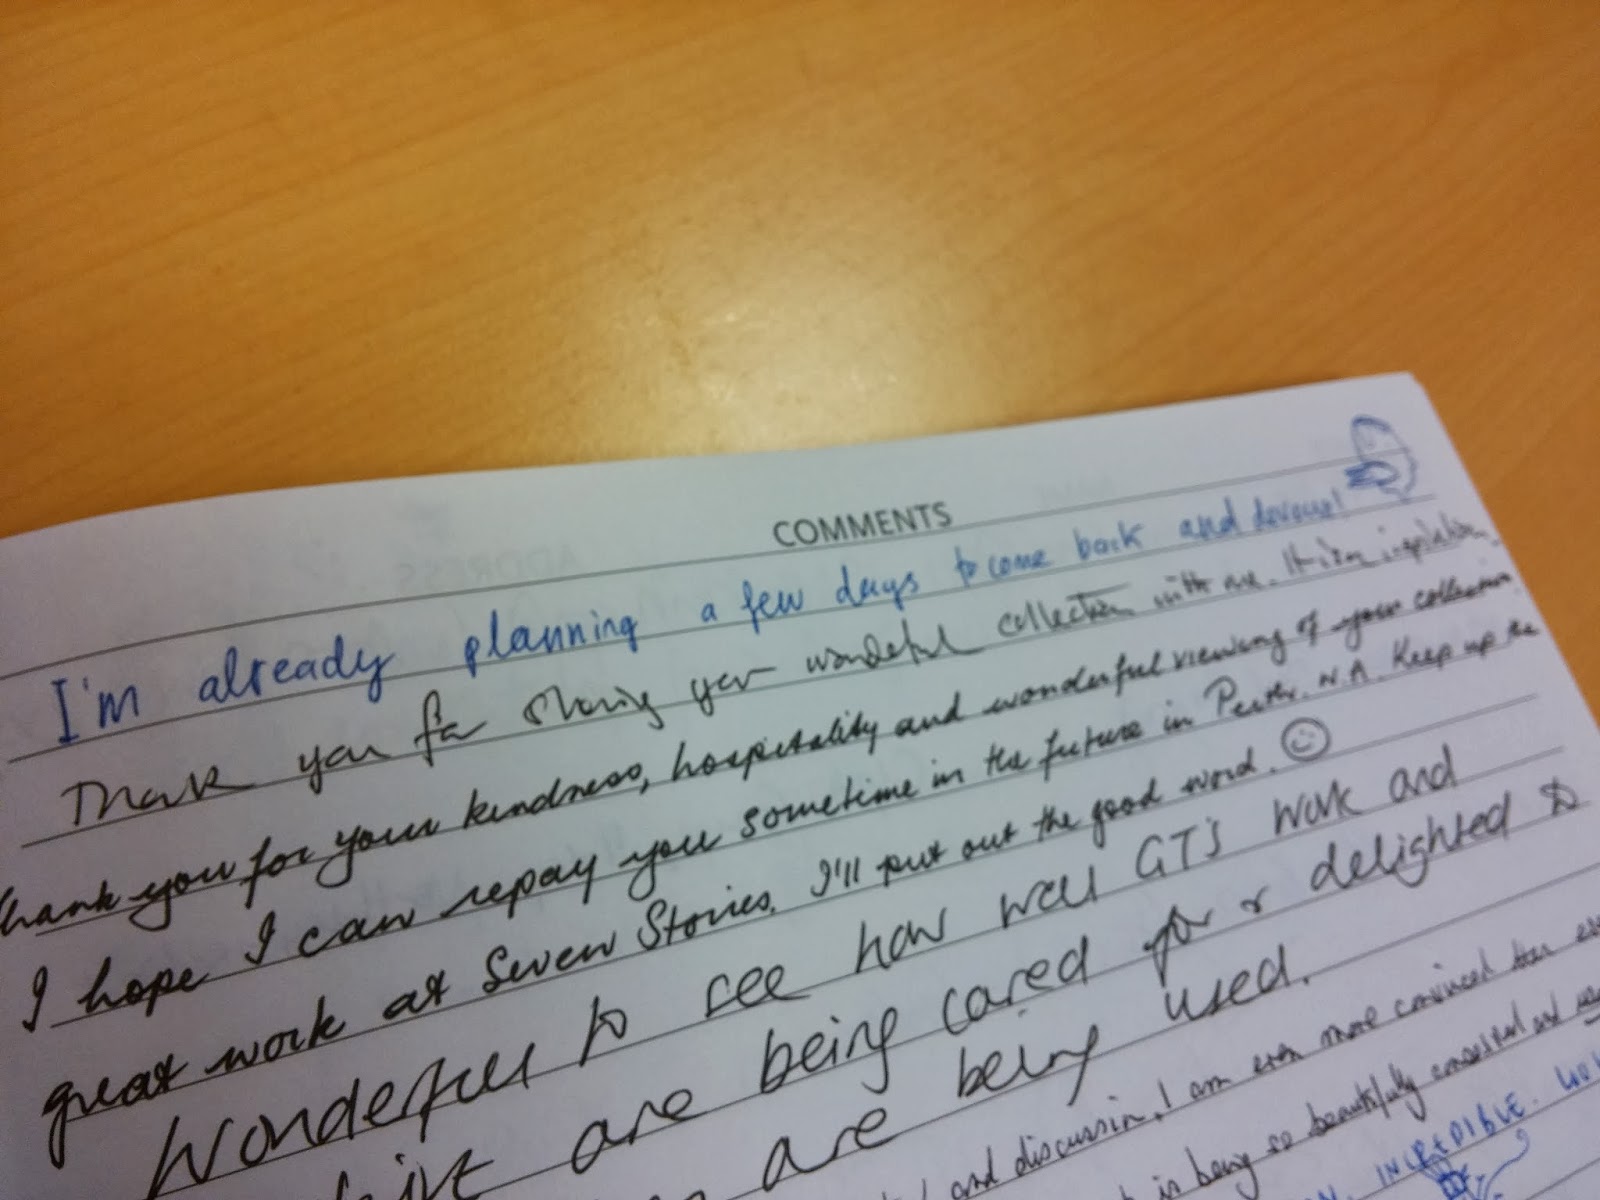 COMMENTS
I'm already planning a few days to come back and devour!
Thank you for sharing your wonderful collection with me. It is an inspiration.
Thank you for your kindness, hospitality and wonderful viewing of your collection.
I hope I can repay you sometime in the future in Perth. W.A. Keep up the
great work at Seven Stories. I'll put out the good word.
Wonderful to see how well GT's work and
are being cared for & delighted to
are being used.
and discussion, I am even more convinced
is being so beautifully conserved and
INCREDIBLE.